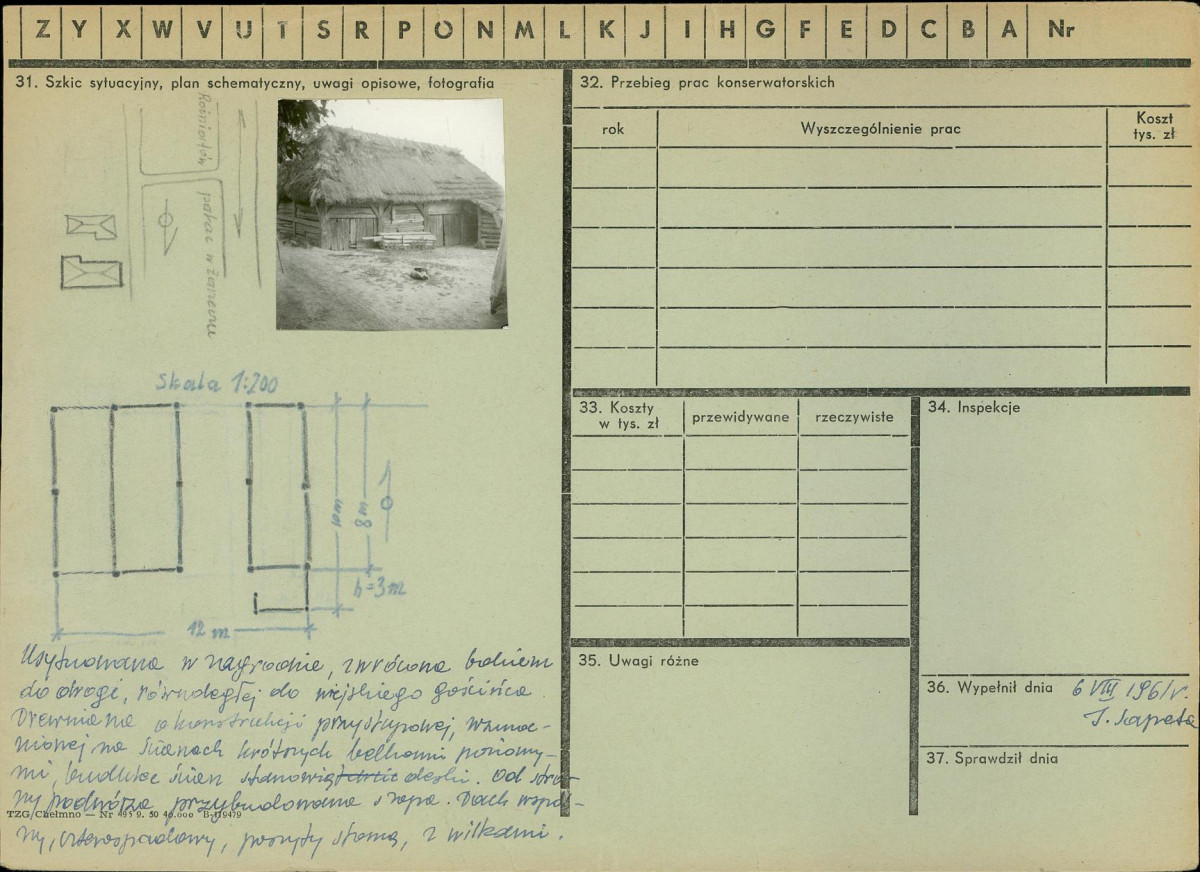 Z Y X W V U T S R P O N M L K J I H G F E D C B A Nr
31. Szkic sytuacyjny, plan schematyczny, uwagi opisowe, fotografia
pałac w Żarowie
Skala 1:200
8 m
h=3 m
12 m
Usytuowana w zagrodzie, zwrócona bokiem
do drogi, równoległej do wiejskiego gościńca.
Drewniana o konstrukcji przysłupowej, wzmoc-
nionej na ścianach krótszych belkami poziomy-
mi, budulec ścian stanowią deski. Od stro-
ny podwórza przybudowana szopa. Dach wspól-
ny, czterospadowy, poszyty słomą, z wilkami.
TZG/Chełmno — Nr 495 9. 50 40.000 B-119479
32. Przebieg prac konserwatorskich
rok Wyszczególnienie prac Koszt tys. zł
33. Koszty w tys. zł przewidywane rzeczywiste
34. Inspekcje
35. Uwagi różne
36. Wypełnił dnia 6 VIII 1961 r.
J. Sapeta
37. Sprawdził dnia